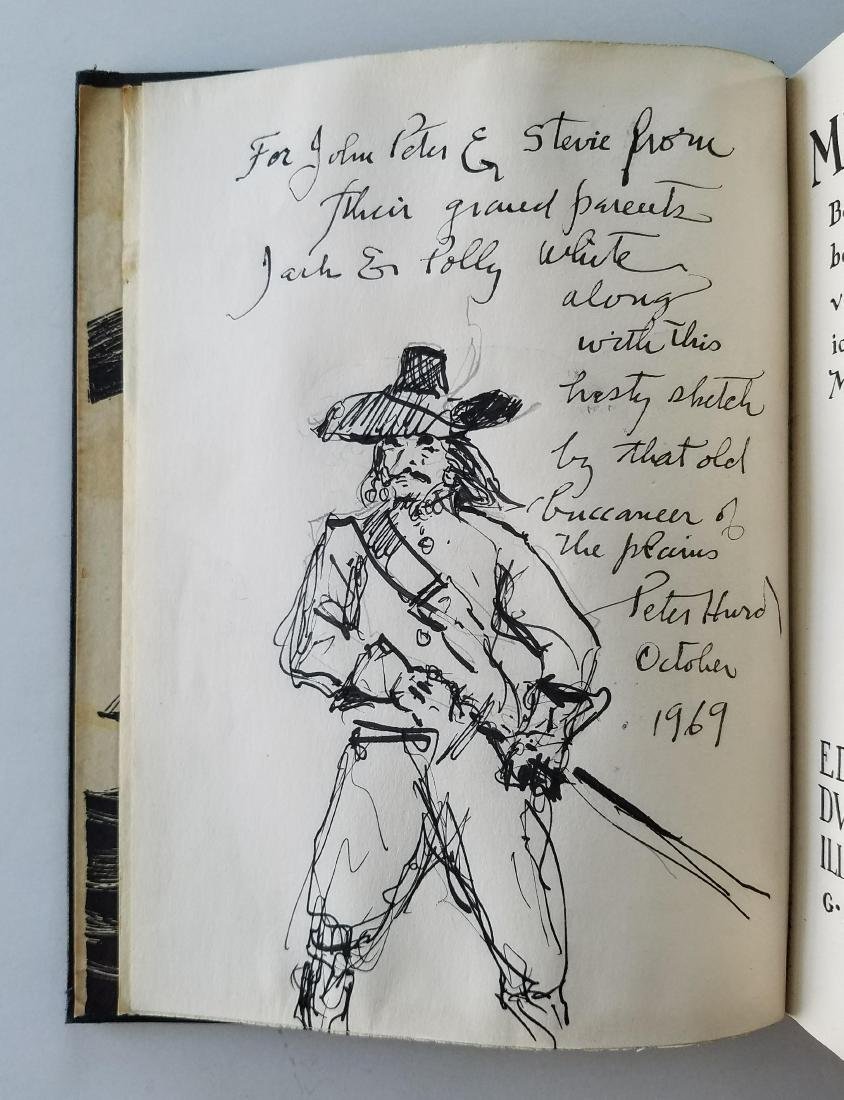 For John Peter & Stevie from
their grand parents
Jack & Polly White
along
with this
hasty sketch
by that old
buccaneer of
the plains
Peter Hurd
October
1969
M
B
b
v
ic
M
ED
DW
ILL
G.